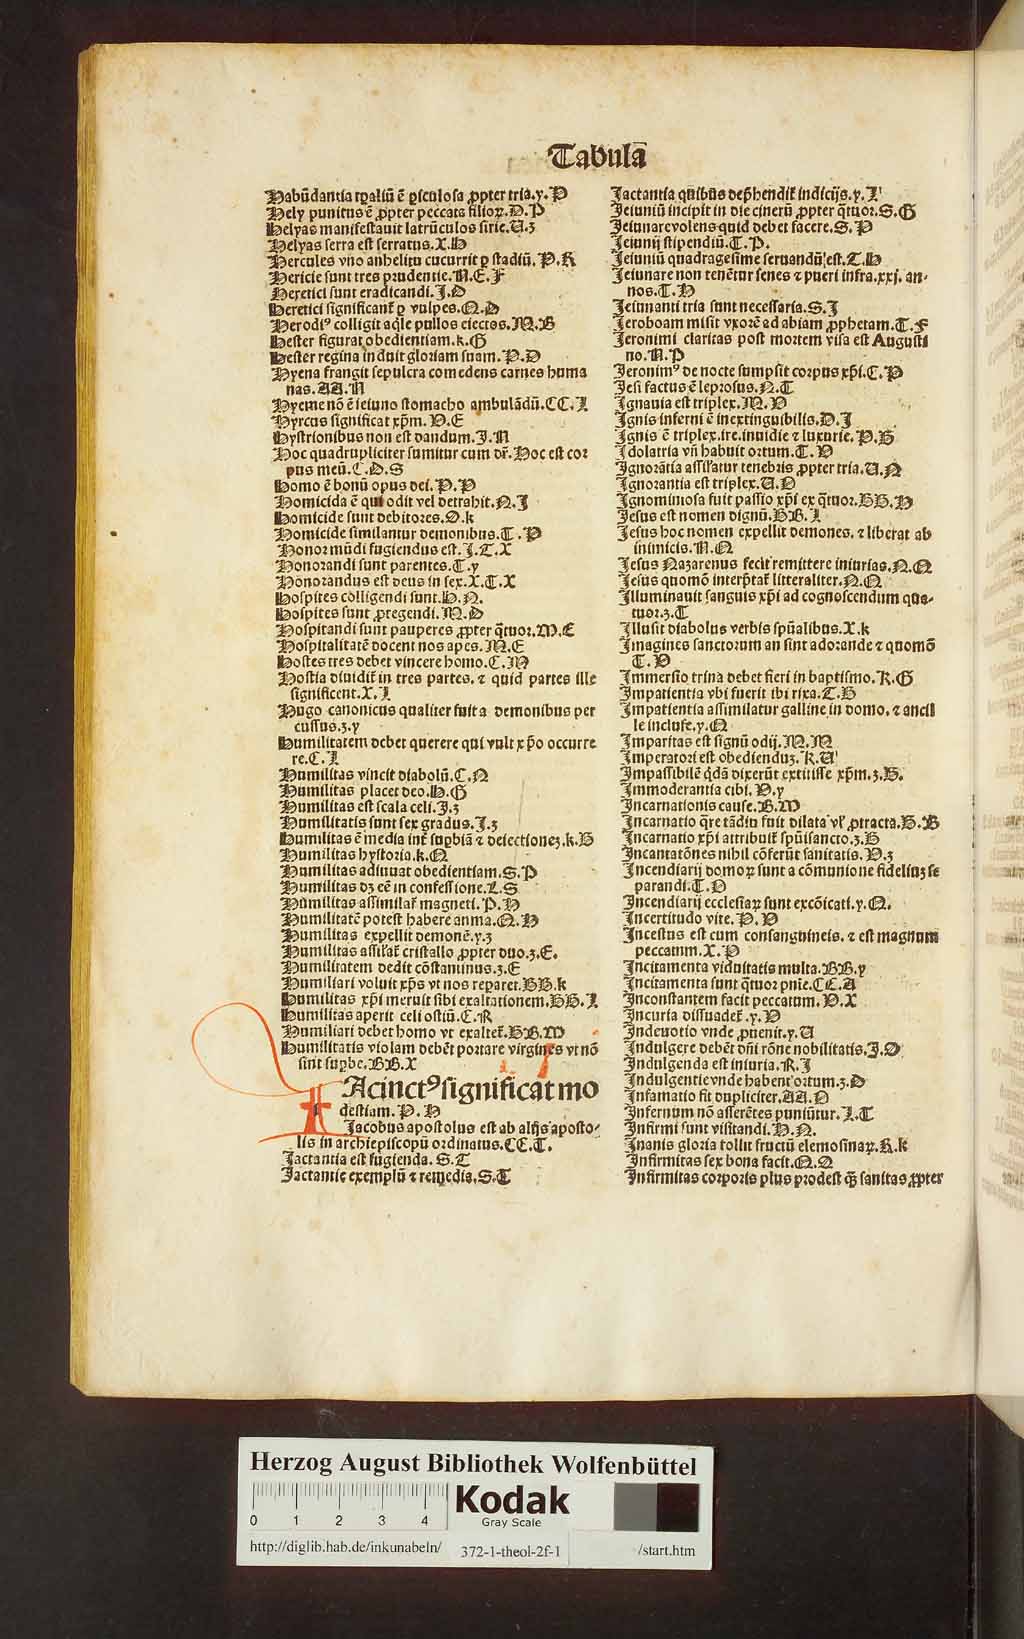 Tabula
Habūdantia tꝑaliū ē ꝑiculosa ꝓpter tria.y.P
Hely punitus ē ꝓpter peccata filioꝝ.D.P
Helyas manifestauit latrūculos sirie.U.3
Helyas serra est serratus.X.H
Hercules vno anhelitu cucurrit ꝑ stadiū.P.R
Hericie sunt tres prudentie.N.E.F
Heretici sunt eradicandi.J.O
Heretici significant̄ ꝑ vulpes.Q.D
Herodiꝰ colligit aq̄le pullos eiectos.M.B
Hester figurat obedientiam.k.G
Hester regina induit gloriam suam.P.D
Hyena frangit sepulcra comedens carnes huma
nas.AA.N
Hyeme nō ē ieiuno stomacho ambulādū.CC.I
Hyrcus significat xp̄m.D.E
Hystrionibus non est dandum.J.N
Hoc quadrupliciter sumitur cum dr̄.Hoc est cor
pus meū.C.D.S
Homo ē bonū opus dei.P.P
Homicida ē qui odit vel detrahit.N.J
Homicide sunt debitores.O.k
Homicide similantur demonibus.T.P
Honor mūdi fugiendus est.J.T.X
Honorandi sunt parentes.T.y
Honorandus est deus in sex.X.T.X
Hospites colligendi sunt.H.N.
Hospites sunt ꝓtegendi.M.D
Hospitandi sunt pauperes ꝓpter q̄tuor.M.E
Hospitalitatē docent nos apes.M.E
Hostes tres debet vincere homo.C.M
Hostia diuidit̄ in tres partes. ⁊ quid partes ille
significent.X.I
Hugo canonicus qualiter fuit a demonibus per
cussus.3.y
Humilitatem debet querere qui vult xp̄o occurre
re.C.I
Humilitas vincit diabolū.C.N
Humilitas placet deo.H.G
Humilitas est scala celi.J.3
Humilitatis sunt sex gradus.J.3
Humilitas ē media int̄ suꝑbiā ⁊ deiectionez.k.H
Humilitas hystoria.k.Q
Humilitas adiuuat obedientiam.S.P
Humilitas dz eē in confessione.L.S
Humilitas assimilat̄ magneti.P.H
Humilitatē potest habere anima.Q.H
Humilitas expellit demonē.y.3
Humilitas assil̄at̄ cristallo ꝓpter duo.3.E.
Humilitatem dedit cōstantinus.3.E
Humiliari voluit xp̄s vt nos reparet.BB.k
Humilitas xp̄i meruit sibi exaltationem.BB.I
Humilitas aperit celi ostiū.C.R
Humiliari debet homo vt exaltet̄.BB.M
Humilitatis violam debēt portare virgines vt nō
sint suꝑbe.BB.X
Iacinctꝰ significat mo
destiam.P.H
Jacobus apostolus est ab alijs aposto-
lis in archiepiscopū ordinatus.CC.T.
Jactantia est fugienda.S.T
Jactantie exemplū ⁊ remedia.S.T
Jactantia quibus dep̄hendit̄ indicijs.y.I
Jeiuniū incipit in die cinerū ꝓpter q̄tuor.S.G
Jeiunare volens quid debet facere.S.P
Jeiunij stipendiū.T.P.
Jeiuniū quadragesime seruandū est.T.H
Jeiunare non tenētur senes ⁊ pueri infra.xxj. an-
nos.T.H
Jeiunanti tria sunt necessaria.S.J
Jeroboam misit vxorē ad abiam ꝓphetam.T.F
Jeronimi claritas post mortem visa est Augusti
no.N.P
Jeronimꝰ de nocte sumpsit corpus xp̄i.C.P
Jesi factus ē leprosus.N.T
Ignauia est triplex.M.D
Ignis inferni ē inextinguibilis.D.J
Ignis ē triplex.ire.inuidie ⁊ luxurie.P.H
Idolatria vn̄ habuit ortum.T.D
Ignorātia assil̄atur tenebris ꝓpter tria.U.N
Ignorantia est triplex.U.D
Ignominiosa fuit passio xp̄i ex q̄tuor.BB.H
Jesus est nomen dignū.BB.I
Jesus hoc nomen expellit demones. ⁊ liberat ab
inimicis.N.Q
Jesus Nazarenus fecit remittere iniurias.N.Q
Jesus quomō interp̄tat̄ litteraliter.N.Q
Illuminauit sanguis xp̄i ad cognoscendum qua-
tuor.3.T
Illusit diabolus verbis sp̄ualibus.X.k
Imagines sanctorum an sint adorande ⁊ quomō
T.D
Immersio trina debet fieri in baptismo.R.G
Impatientia vbi fuerit ibi rixa.T.H
Impatientia assimilatur galline in domo. ⁊ ancil
le incluse.y.Q
Imparitas est signū odij.M.M
Imperatori est obediendum.R.U
Impassibilē q̄dā dixerūt extitisse xp̄m.3.H.
Immoderantia cibi.D.y
Incarnationis cause.B.M
Incarnatio q̄re tādiu fuit dilata vl̓ ꝓtracta.H.B
Incarnatio xp̄i attribuit̄ sp̄uisancto.3.H
Incantatōnes nihil cōferūt sanitatis.D.3
Incendiarij domoꝝ sunt a cōmunione fideliuz se
parandi.T.D
Incendiarij ecclesiaꝝ sunt excōicati.y.Q.
Incertitudo vite.P.D
Incestus est cum consanguineis. ⁊ est magnum
peccatum.X.P
Incitamenta viduitatis multa.BB.y
Incitamenta sunt q̄tuor pnie.CC.A
Inconstantem facit peccatum.D.X
Incuria dissuadet̄.y.D
Indeuotio vnde ꝓuenit.y.U
Indulgere debēt dn̄i rōne nobilitatis.J.O
Indulgenda est iniuria.R.J
Indulgentie vnde habent ortum.3.D
Infamatio fit dupliciter.AA.D
Infernum nō asserētes puniūtur.I.T
Infirmi sunt visitandi.H.N.
Inanis gloria tollit fructū elemosinaꝝ.R.k
Infirmitas sex bona facit.Q.O
Infirmitas corporis plus prodest q̄ꝫ sanitas ꝓpter
Herzog August Bibliothek Wolfenbüttel
0 1 2 3 4
Kodak
Gray Scale
http://diglib.hab.de/inkunabeln/ 372-1-theol-2f-1 /start.htm